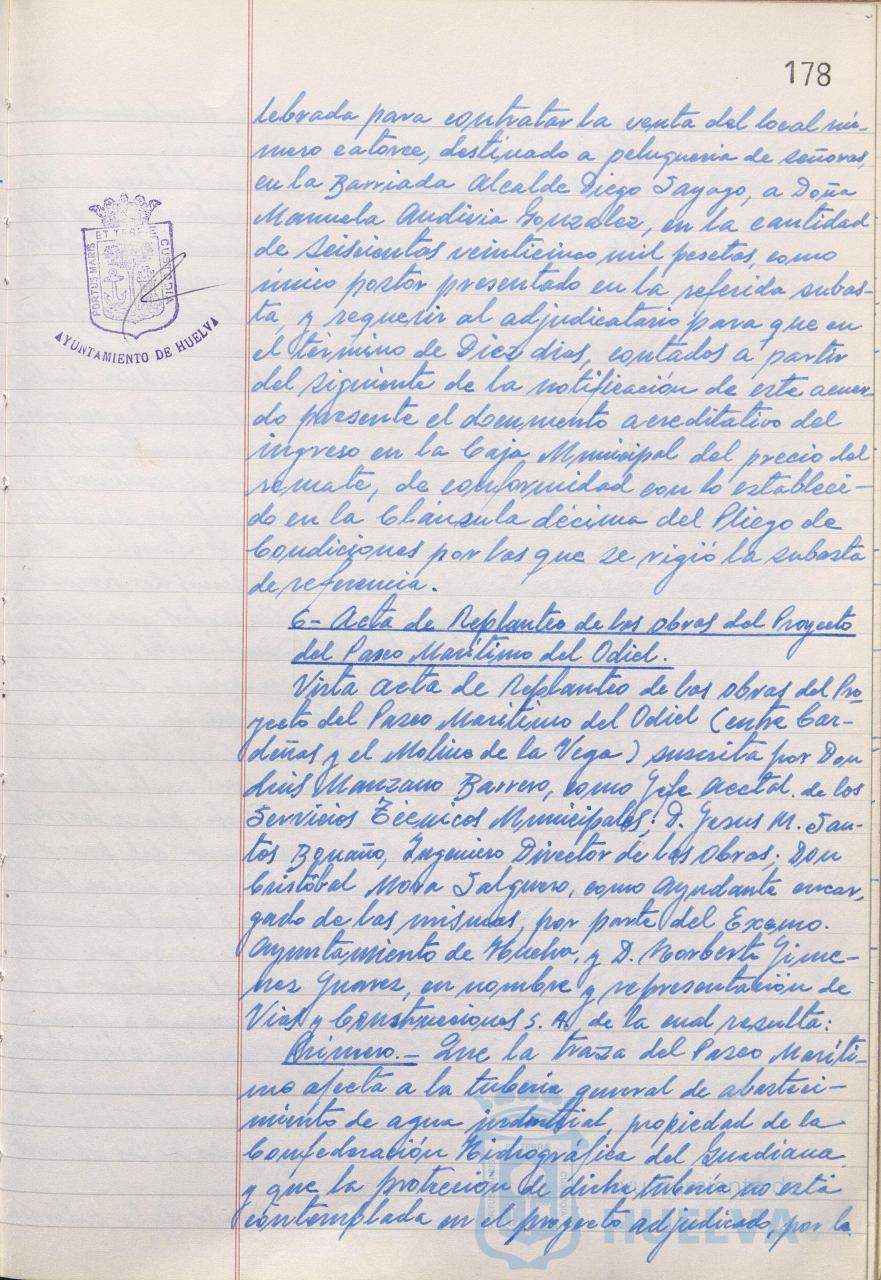 178
lebrada para contratar la venta del local nú-
mero catorce, destinado a peluqueria de señoras,
en la Barriada Alcalde Diego Sayago, a Doña
Manuela Audivia Gonzalez, en la cantidad
de seiscientas veinticinco mil pesetas, como
único postor presentado en la referida subas-
ta, y requerir al adjudicatario para que en
el término de Diez dias, contados a partir
del siguiente de la notificación de este acuer-
do presente el documento acreditativo del
ingreso en la Caja Municipal del precio del
remate, de conformidad con lo estableci-
do en la Cláusula décima del Pliego de
Condiciones por las que se rigió la subasta
de referencia.
6- Acta de Replanteo de las obras del Proyecto
del Paseo Marítimo del Odiel.
Vista acta de Replanteo de las obras del Pro-
yecto del Paseo Marítimo del Odiel (entre Car-
deñas y el Molino de la Vega) suscrita por Don
Luis Manzano Barrero, como Jefe Acctal. de los
Servicios Técnicos Municipales; D. Jesus M. San-
tos Bonaño, Ingeniero Director de las Obras; Don
Cristóbal Mora Salguero, como Ayudante encar-
gado de las mismas, por parte del Excmo.
Ayuntamiento de Huelva, y D. Norberto Gime-
nez Juarez, en nombre y representación de
Vias y Construcciones S. A., de la cual resulta:
Primero.- Que la traza del Paseo Maríti-
mo afecta a la tuberia general de abasteci-
miento de agua industrial, propiedad de la
Confederación Hidrográfica del Guadiana
y que la protección de dicha tuberia no está
contemplada en el proyecto adjudicado, por la
PORTUS MARIS ET TERRE CUSTODIA
AYUNTAMIENTO DE HUELVA
Ayuntamiento de
HUELVA